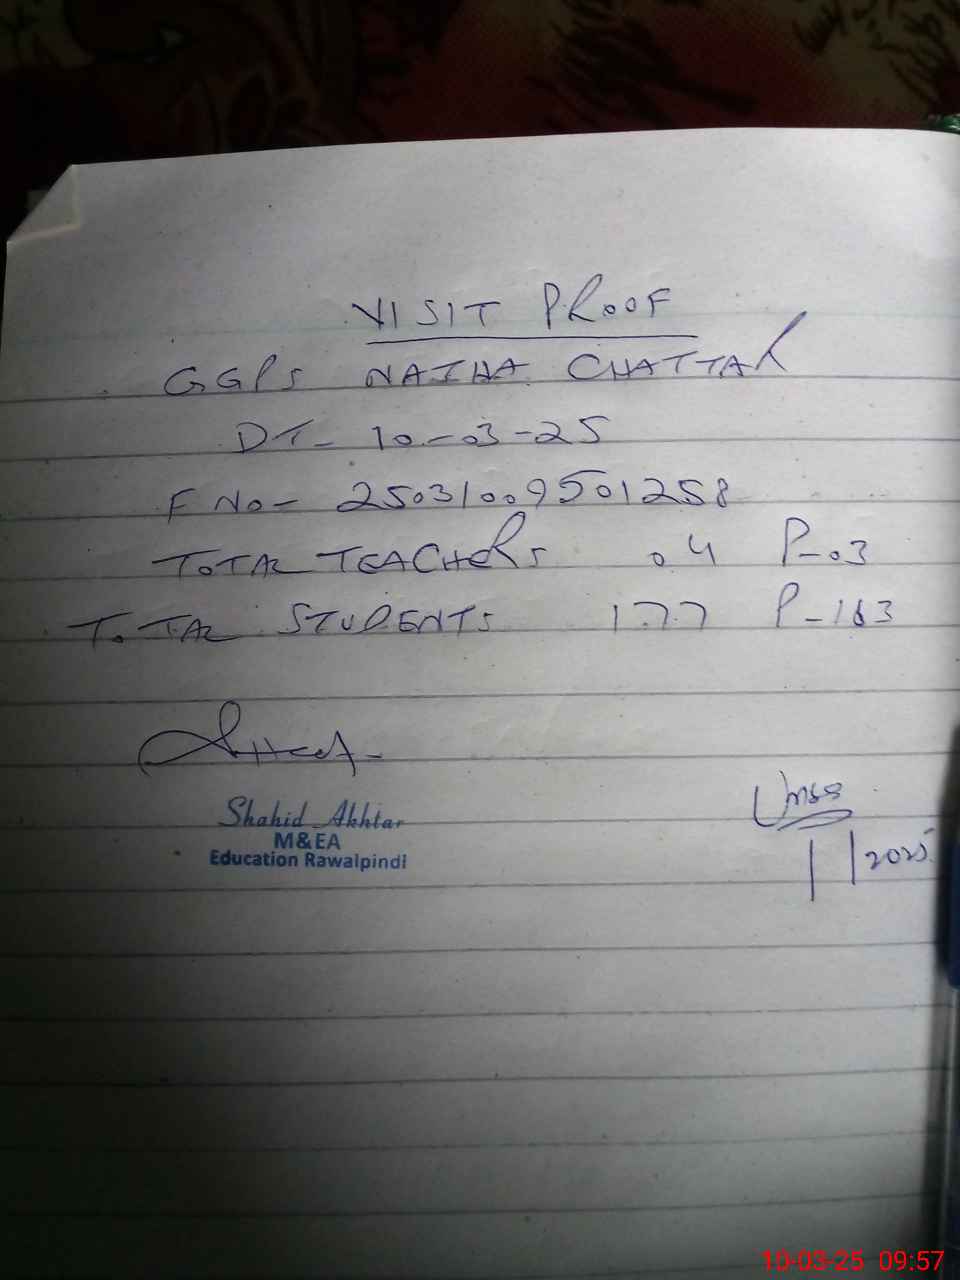 VISIT PROOF
GGPS NATHA CHATTAR
DT- 10-03-25
F NO- 25031009501258
TOTAL TEACHERS 04 P-03
TOTAL STUDENTS 177 P-163
Shahid Akhtar
M&EA
Education Rawalpindi
2025
10-03-25 09:57